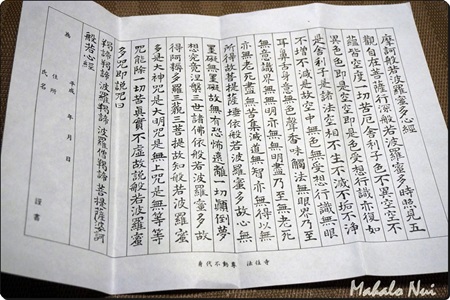 摩訶般若波羅蜜多心經
觀自在菩薩行深般若波羅蜜多時照見五
蘊皆空度一切苦厄舎利子色不異空空不
異色色即是空空即是色受想行識亦復如
是舎利子是諸法空相不生不滅不垢不淨
不増不減是故空中無色無受想行識無眼
耳鼻舌身意無色聲香味觸法無眼界乃至
無意識界無無明亦無無明盡乃至無老死
亦無老死盡無苦集滅道無智亦無得以無
所得故菩提薩埵依般若波羅蜜多故心無
罣礙無罣礙故無有恐怖遠離一切顛倒夢
想究竟涅槃三世諸佛依般若波羅蜜多故
得阿耨多羅三藐三菩提故知般若波羅蜜
多是大神咒是大明咒是無上咒是無等等
咒能除一切苦真實不虚故説般若波羅蜜
多咒即説咒曰
羯諦羯諦波羅羯諦波羅僧羯諦菩提薩婆訶
般若心經
為
平成 年 月 日
住所
氏名 謹書
身代不動尊 法住寺
Mahalo Nui